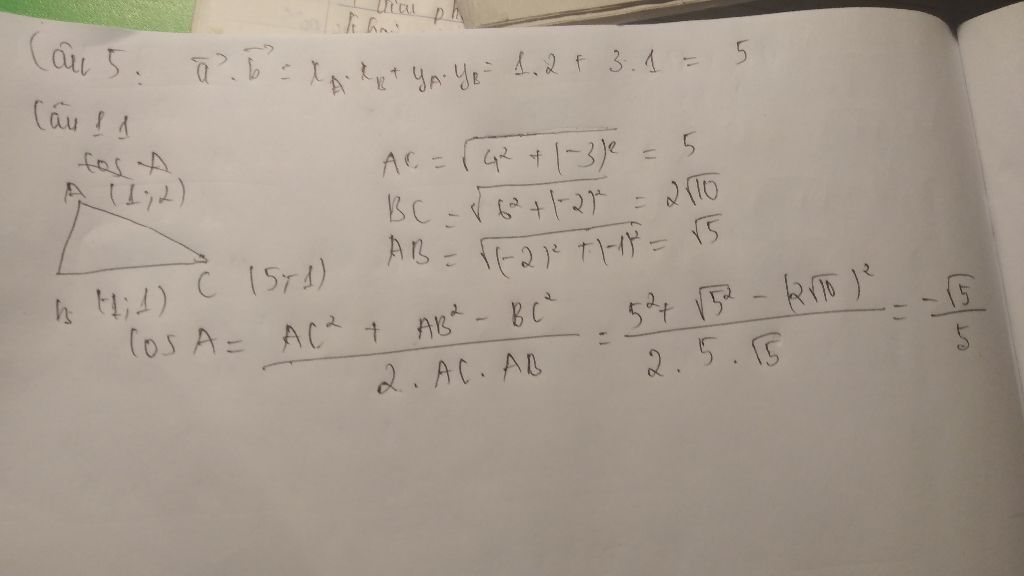 Câu 5: a⃗ . b⃗ = x_A . x_B + y_A . y_B = 1.2 + 3.1 = 5
Câu 11
cos A
A (1;2)
B (-1;1)
C (5;-1)
AC = √(4² + (-3)²) = 5
BC = √(6² + (-2)²) = 2√10
AB = √((-2)² + (-1)²) = √5
Cos A = (AC² + AB² - BC²)/(2 . AC . AB) = (5² + √5² - (2√10)²)/(2 . 5 . √5) = -√5/5